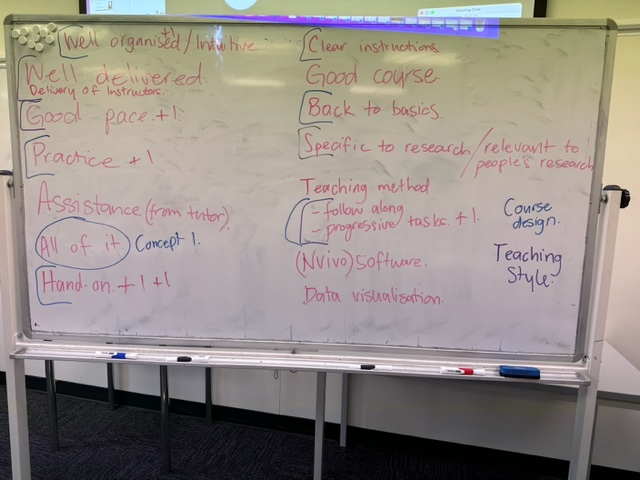 +1
Well organised/Intuitive
Well delivered.
Delivery of Instructors.
Good pace +1
Practice +1
Assistance (from tutor).
All of it. Concept 1.
Hand-on. +1 +1
Clear instructions
Good course.
Back to basics.
Specific to research / relevant to
people's research
Teaching method
- follow along
- progressive tasks. +1.
(NVivo) Software.
Data visualisation.
Course
design.
Teaching
Style.